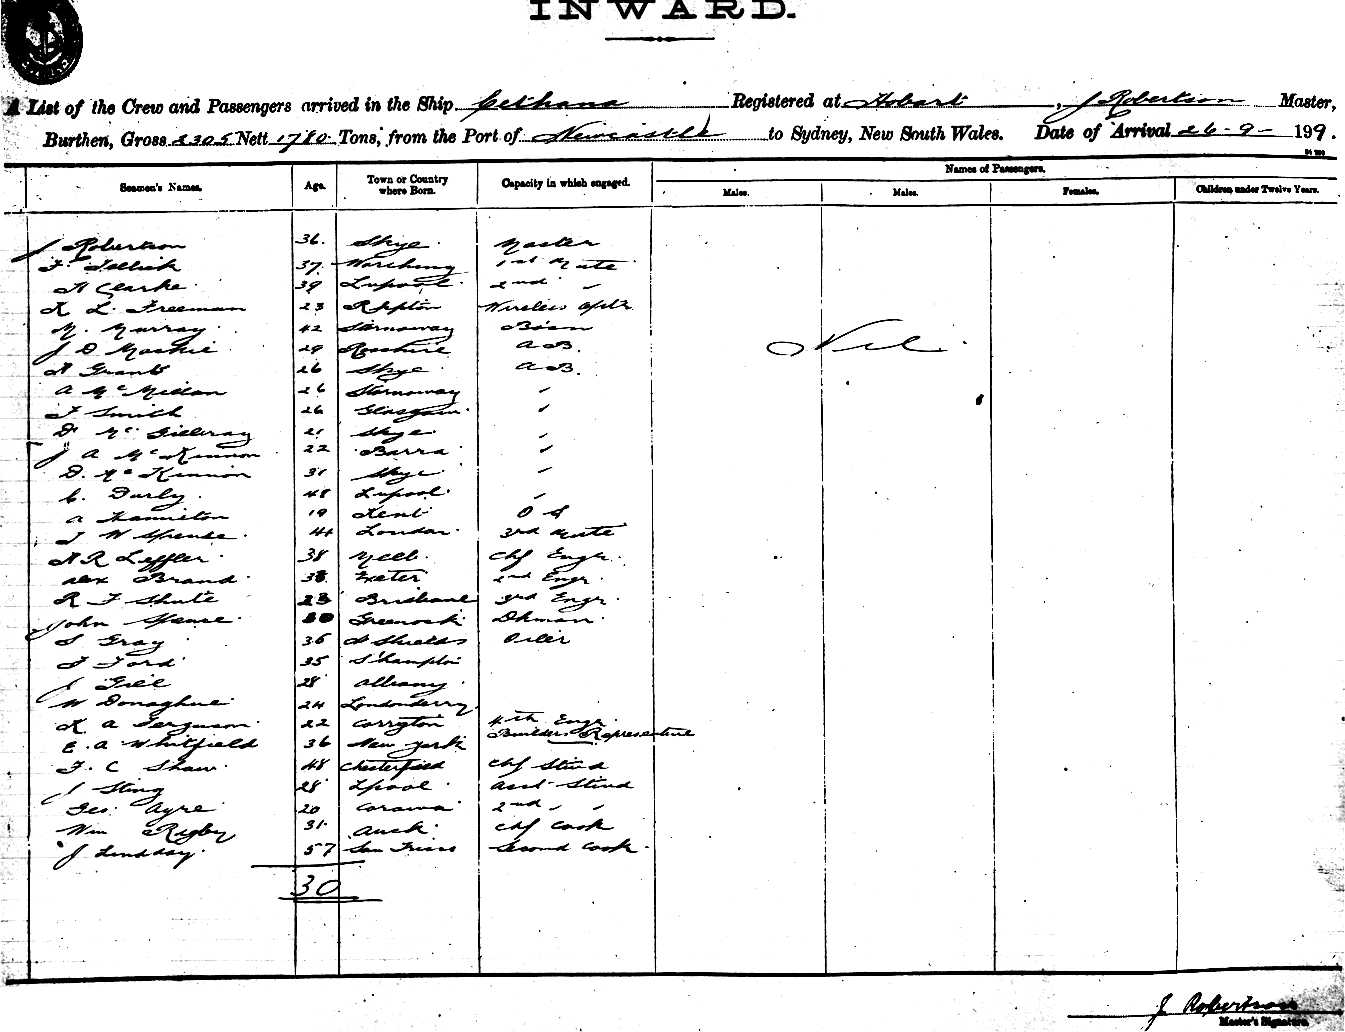 INWARD.
A List of the Crew and Passengers arrived in the Ship Cethana Registered at Hobart, J Robertson Master,
Burthen, Gross 2305 Nett 1710 Tons, from the Port of Newcastle to Sydney, New South Wales. Date of Arrival 26-9-1919.
Names of Passengers.
Seamen's Names. Age. Town or Country where Born. Capacity in which engaged. Males. Males. Females. Children under Twelve Years.
J Robertson 36. Skye. Master
F. 37. 1st Mate
H Clarke. 39 L'pool. 2nd "
K L. Freeman 23 Repton Wireless Optr
M. Murray 42 Stornoway Bosn
J D Mackie 29 Rosshire A B. Nil.
N Grant 26 Skye. A B.
A McMillan 26 Stornoway "
T Smith 26 Glasgow. "
D. McGillvray 21 Skye. "
J A McKinnon 22 Barra "
D. McKinnon 31 Skye "
C. Darly. 48 L'pool. "
A Hamilton 19 Kent O S
J W Spense. 41 London. 3rd Mate
N R Leffler. 38 Melb. Chf Engr.
Alex Brand. 38 Exeter 2nd Engr.
R F Shute 23 Brisbane 3rd Engr.
John Spense. 30 Greenock Dkman.
S Gray 36 S Shields Oiler
T Ford 35 S'hampton
J Gill 28 Albany.
W Donaghue 24 Londonderry.
K A Ferguson. 22 Corryton 4th Engr.
E. A Whitfield 36 New York Builders Representive
F. C Shaw. 48 Chesterfield Chf Stwd
J Sting 28 L'pool Asst Stwd
Geo. Ayre 20 Corowa 2nd " "
Wm Rigby 31. Auck. Chf Cook
J Lindsay. 57 San Frisco Second Cook.
30
J Robertson
Master's Signature.